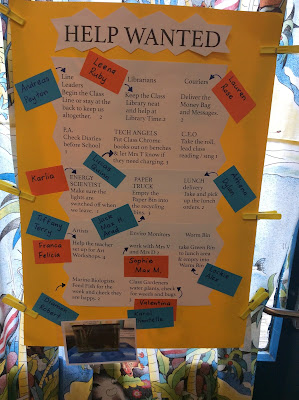 HELP WANTED
Andreas
Peyton
Leena
Ruby
Lauren
Rose
Line
Leaders
Begin the Class
Line or stay at the
back to keep us
altogether. 2
Librarians
Keep the Class
Library neat
and help at
Library Time 2
Couriers
Deliver the
Money Bag
and Messages
2
P.A.
Check Diaries
before School
TECH ANGELS
Put Class Chrome
books out on benches
& let Mrs T know if
they need charging
C.E.O
Take the roll,
lead class
reading / sing 1
Karlia
ENERGY
SCIENTIST
Make sure the
lights are
switched off when
we leave
PAPER
TRUCK
Empty the
Paper Bin into
the recycling
LUNCH
delivery
Take and pick
up the lunch
orders, 2
Tiffany
Terry
Franca
Felicia
Artists
Help the teacher
set up for Art
Workshops, 4
Enviro Monitors
work with Mrs V
and Mrs D 2
Sophie
Max M.
Worm Bin
take Green Bin
to lunch area
& empty into
Worm Bin
Marine Biologists
Feed Fish for the
week and check they
are happy. 2
Class Gardeners
water plants, check
for weeds and bugs
Valentina
Robert